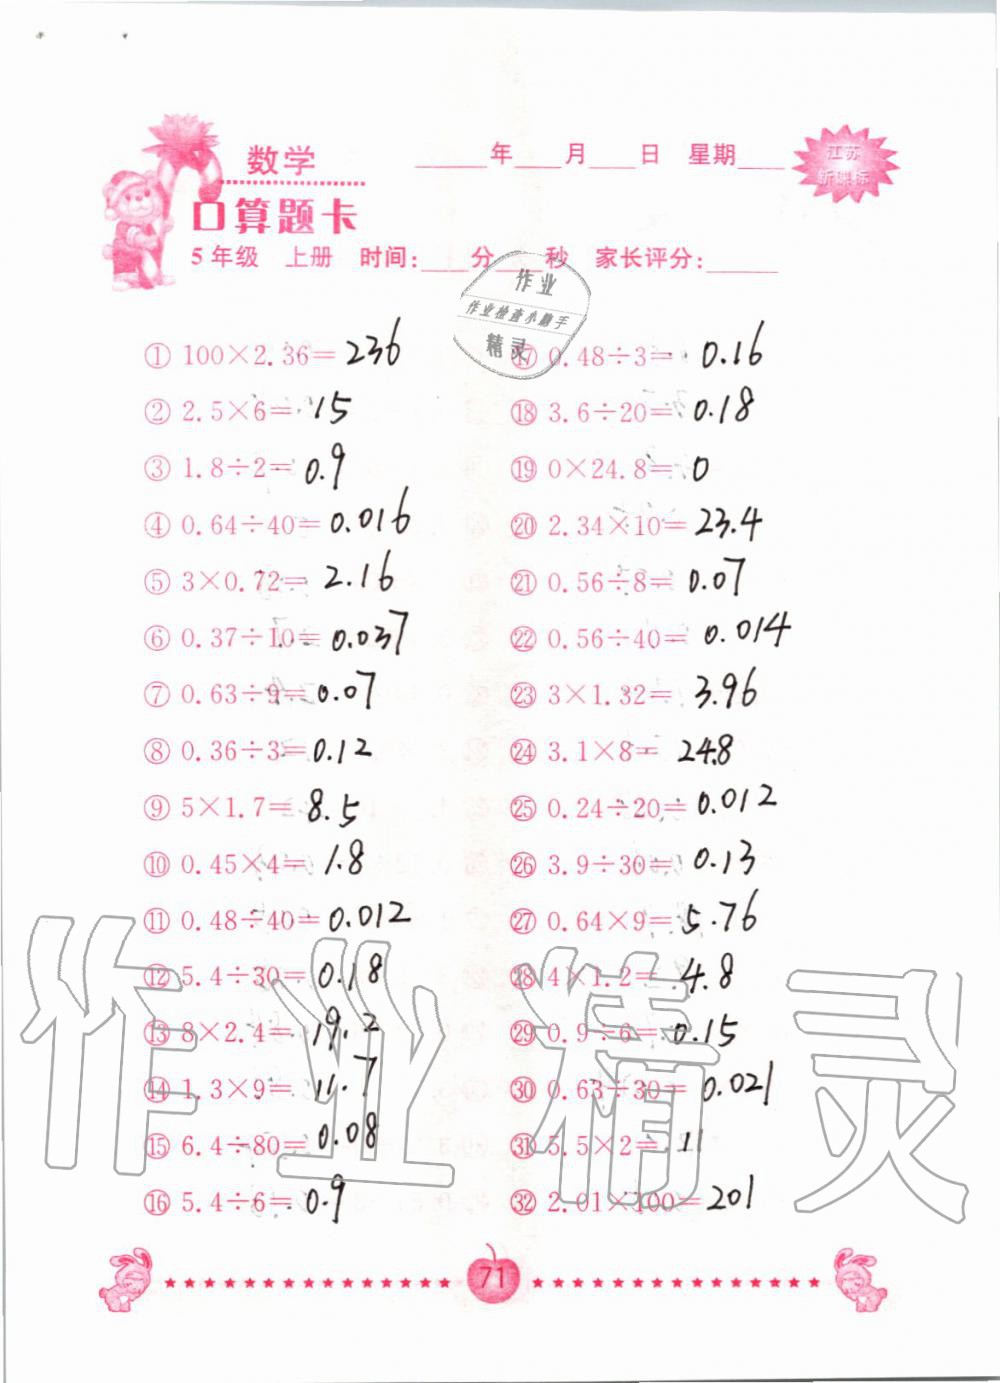 数学 ____年____月____日 星期____
江苏
新课标
口算题卡
5年级 上册 时间:____分____秒 家长评分:______
作业
作业检查小助手
精灵
① 100×2.36= 236
② 2.5×6= 15
③ 1.8÷2= 0.9
④ 0.64÷40= 0.016
⑤ 3×0.72= 2.16
⑥ 0.37÷10= 0.037
⑦ 0.63÷9= 0.07
⑧ 0.36÷3= 0.12
⑨ 5×1.7= 8.5
⑩ 0.45×4= 1.8
⑪ 0.48÷40= 0.012
⑫ 5.4÷30= 0.18
⑬ 8×2.4= 19.2
⑭ 1.3×9= 11.7
⑮ 6.4÷80= 0.08
⑯ 5.4÷6= 0.9
⑰ 0.48÷3= 0.16
⑱ 3.6÷20= 0.18
⑲ 0×24.8= 0
⑳ 2.34×10= 23.4
㉑ 0.56÷8= 0.07
㉒ 0.56÷40= 0.014
㉓ 3×1.32= 3.96
㉔ 3.1×8= 24.8
㉕ 0.24÷20= 0.012
㉖ 3.9÷30= 0.13
㉗ 0.64×9= 5.76
㉘ 4×1.2= 4.8
㉙ 0.9÷6= 0.15
㉚ 0.63÷30= 0.021
㉛ 5.5×2= 11
㉜ 2.01×100= 201
作业精灵
71